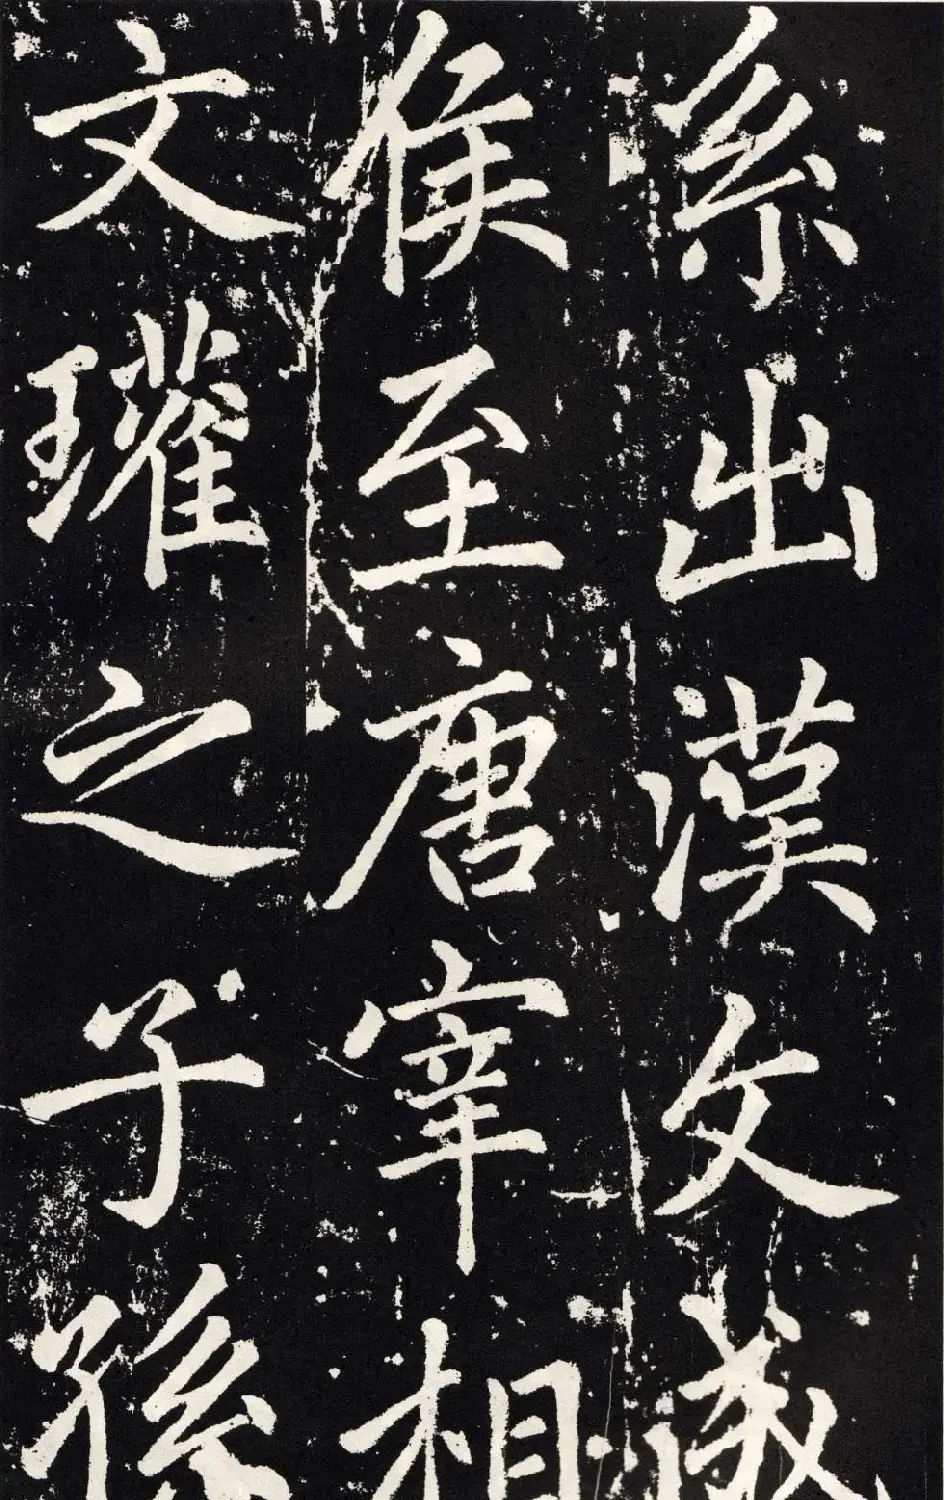 系出漢文成
侯至唐宰相
文瓘之子孫